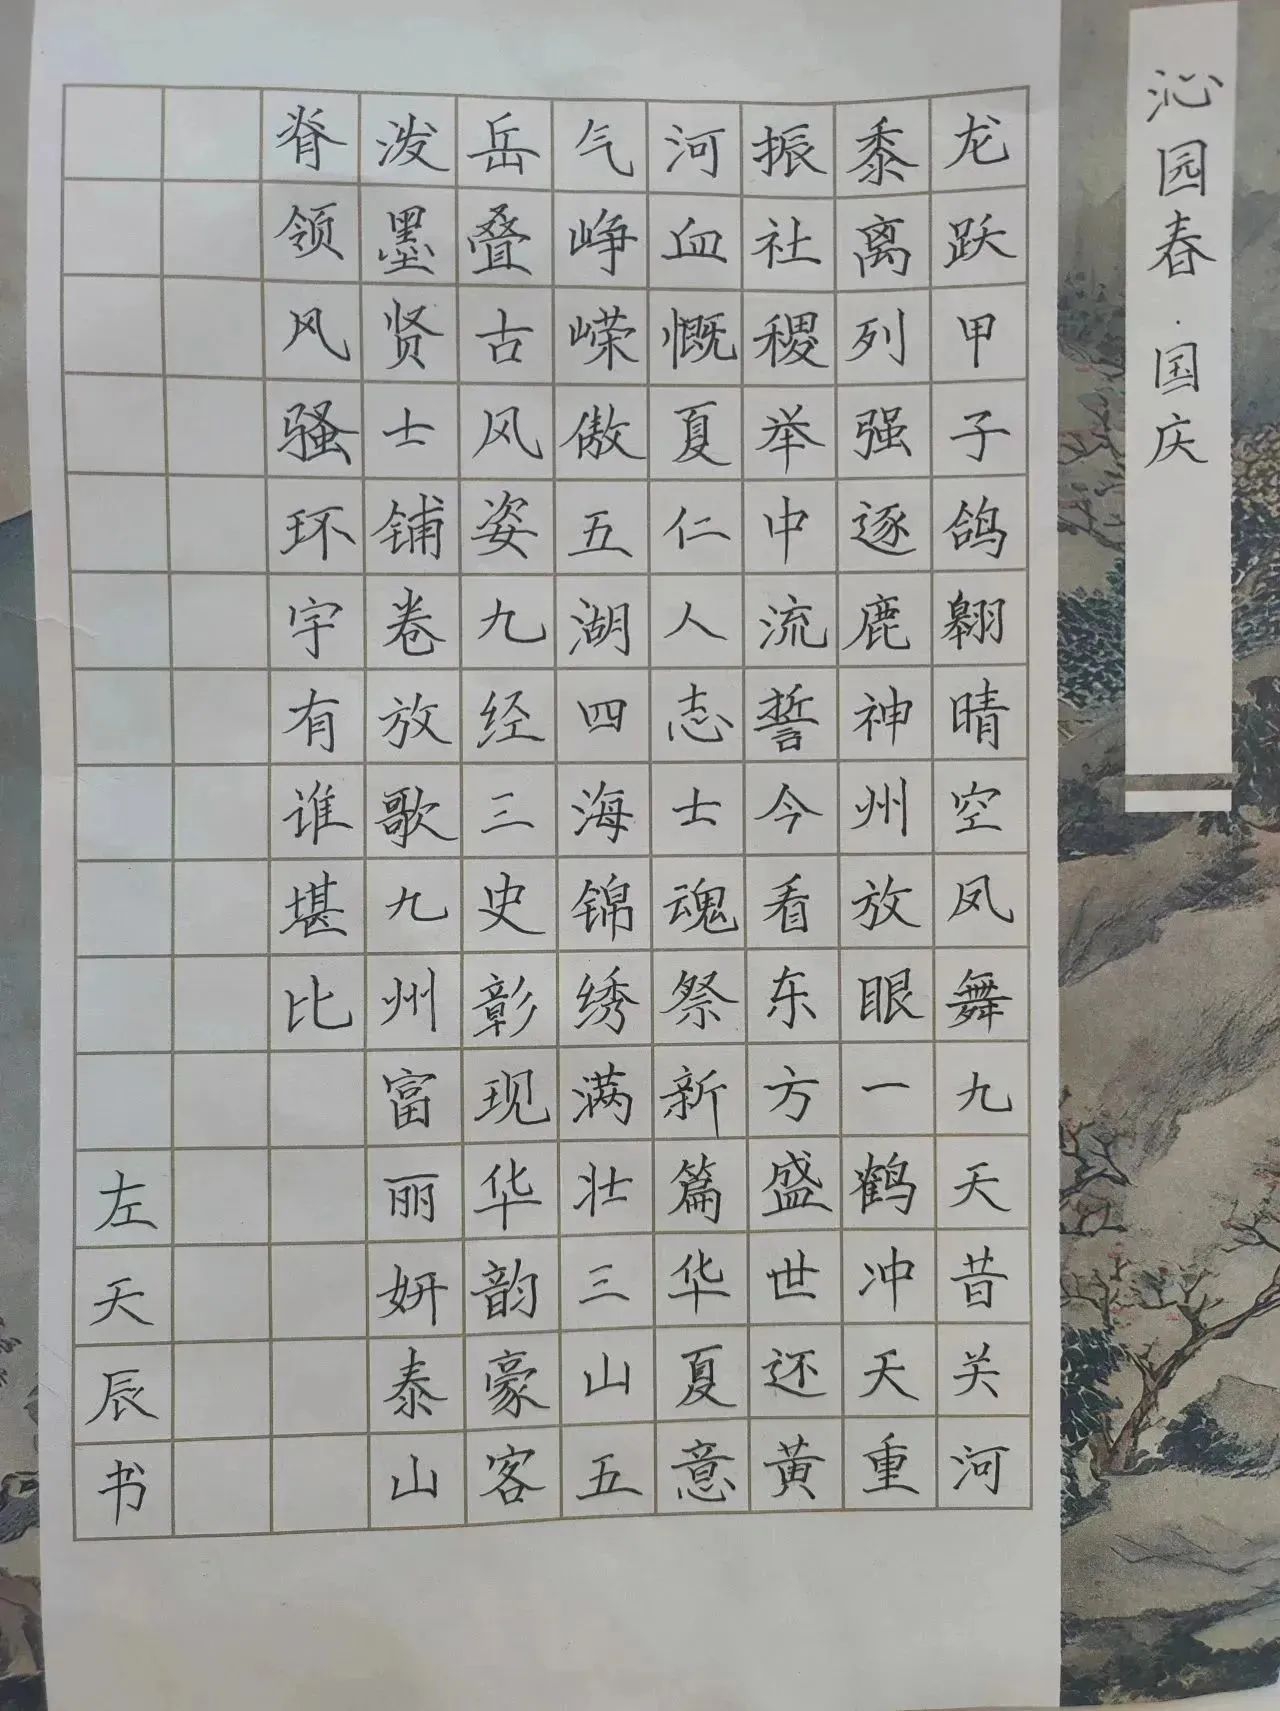 沁园春·国庆
龙跃甲子鸽翱晴空凤舞九天昔关河
黍离列强逐鹿神州放眼一鹤冲天重
振社稷举中流誓今看东方盛世还黄
河血慨夏仁人志士魂祭新篇华夏意
气峥嵘傲五湖四海锦绣满壮三山五
岳叠古风姿九经三史彰现华韵豪客
泼墨贤士铺卷放歌九州富丽妍泰山
脊领风骚环宇有谁堪比
左天辰书